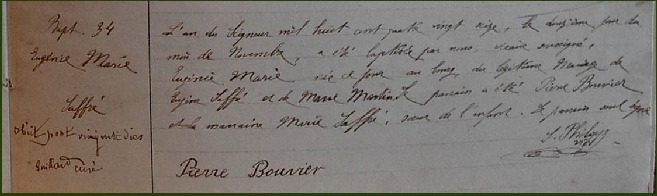 Bapt. 34
Eugénie Marie
Jaffré
Guillard curé
L'an du Seigneur mil huit cent quatre vingt seize, le douzième jour du
mois de Novembre, a été baptisée par nous vicaire soussigné,
Eugénie Marie née ce jour au bourg, du légitime Mariage de
Jaffré et de Marie parrain a été Pierre Bouvier
et la marraine Marie Jaffré, sœur de l'enfant. Le parrain seul signe
Pierre Bouvier